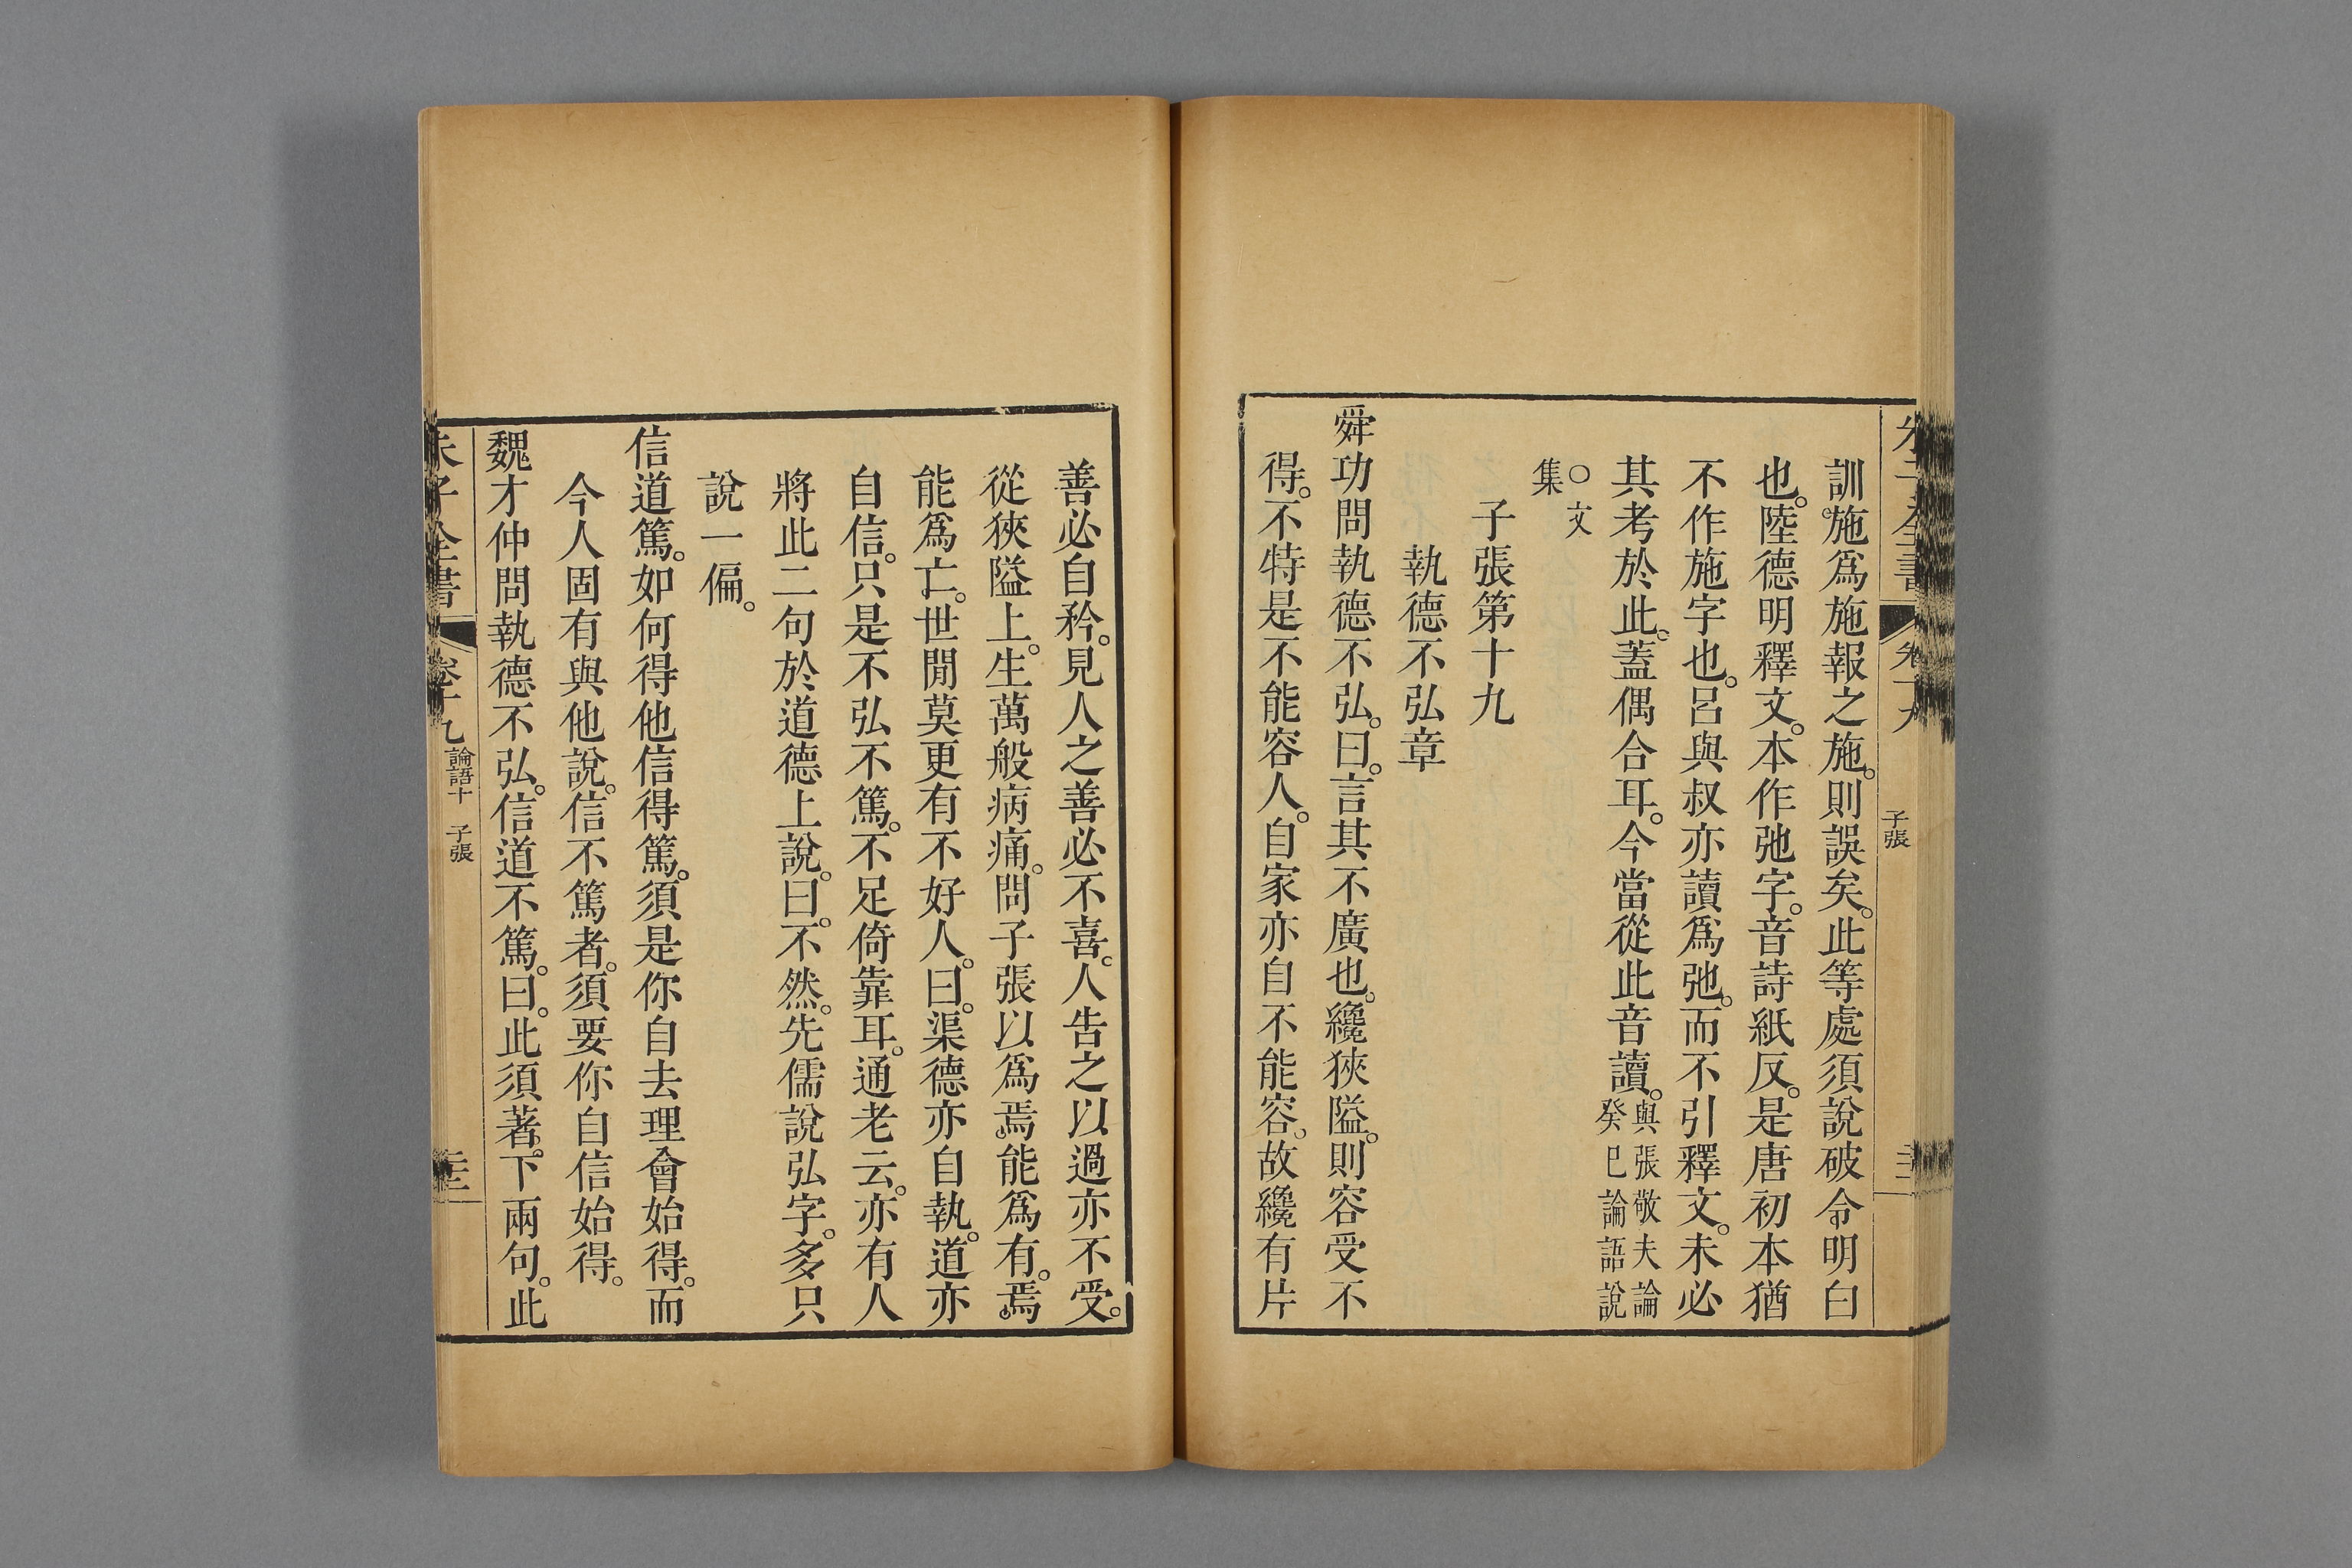 子張
訓。施爲施報之施。則誤矣。此等處須說破令明白
也。陸德明釋文。本作弛字。音詩紙反。是唐初本猶
不作施字也。呂與叔亦讀爲弛。而不引釋文。未必
其考於此。蓋偶合耳。今當從此音讀。與張敬夫論癸巳論語說
○文集
子張第十九
執德不弘章
舜功問執德不弘。曰。言其不廣也。纔狹隘。則容受不
得。不特是不能容人。自家亦自不能容。故纔有片
善必自矜。見人之善必不喜。人告之以過亦不受。
從狹隘上。生萬般病痛。問子張以爲焉。能爲有。焉。
能爲亡。世閒莫更有不好人。曰。渠德亦自執。道亦
自信。只是不弘不篤。不足倚靠耳。通老云。亦有人
將此二句於道德上說。曰。不然。先儒說弘字。多只
說一偏。
信道篤。如何得他信得篤。須是你自去理會始得。而
今人固有與他說。信不篤者。須要你自信始得。
魏才仲問執德不弘。信道不篤。曰。此須著。下兩句。此
朱子全書 卷十九 論語十 子張